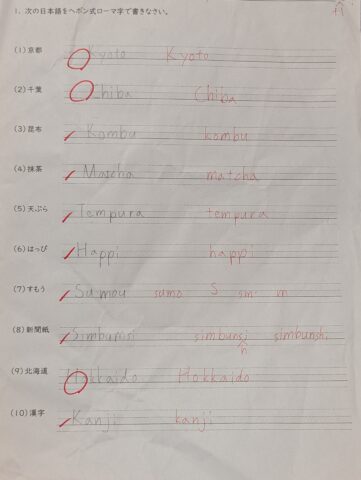 1. 次の日本語をヘボン式ローマ字で書きなさい。
(1)京都 Kyoto Kyoto
(2)千葉 Chiba Chiba
(3)昆布 Kombu kombu
(4)抹茶 Matcha matcha
(5)天ぷら Tempura tempura
(6)はっぴ Happi happi
(7)すもう Sumou sumo S sm m
(8)新聞紙 Simbunsi simbunsi simbunshi
h
(9)北海道 Hokkaido Hokkaido
(10)漢字 Kanji kanji